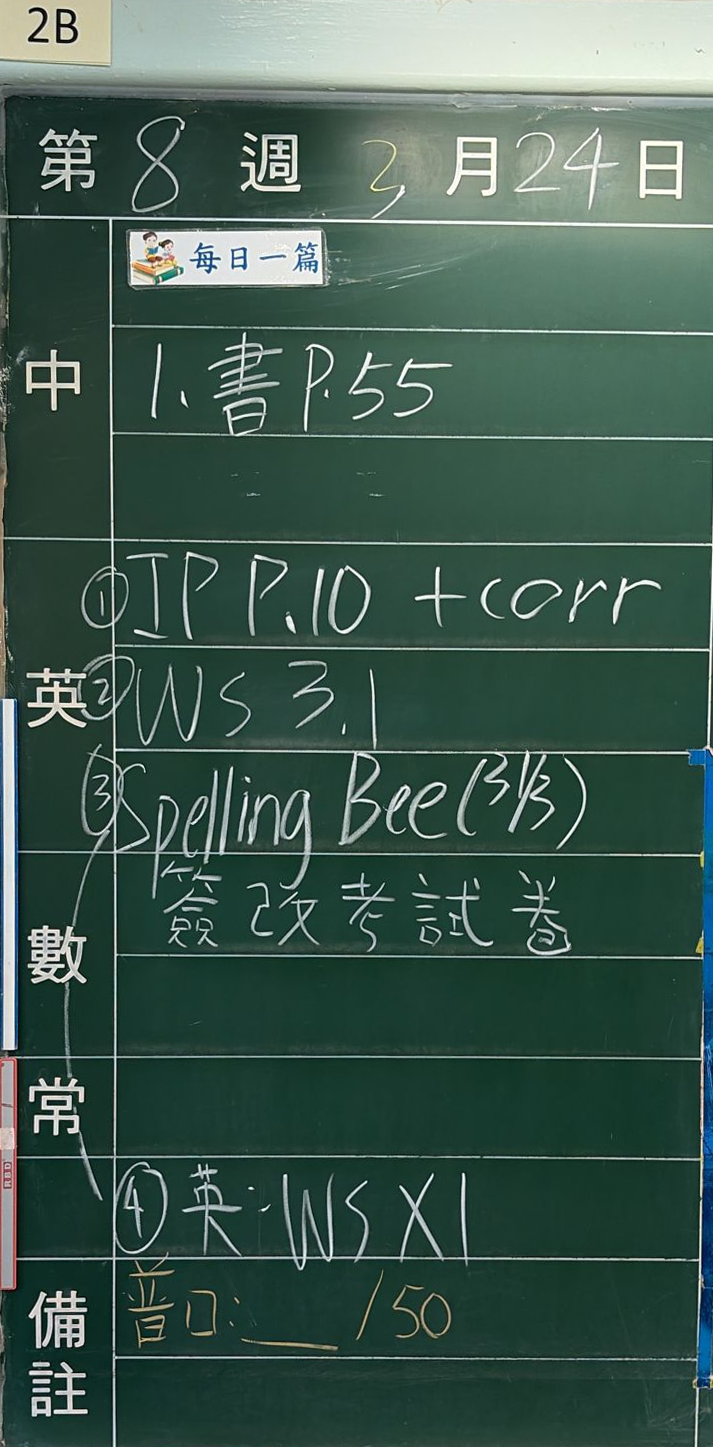 2B
第 8 週 3 月 24 日
每日一篇
中
1. 書 P.55
英
① IP P.10 + corr
② WS 3.1
③ Spelling Bee (31/3)
數
簽改考試卷
常
④ 英: WS X1
備註
普口: __ /50